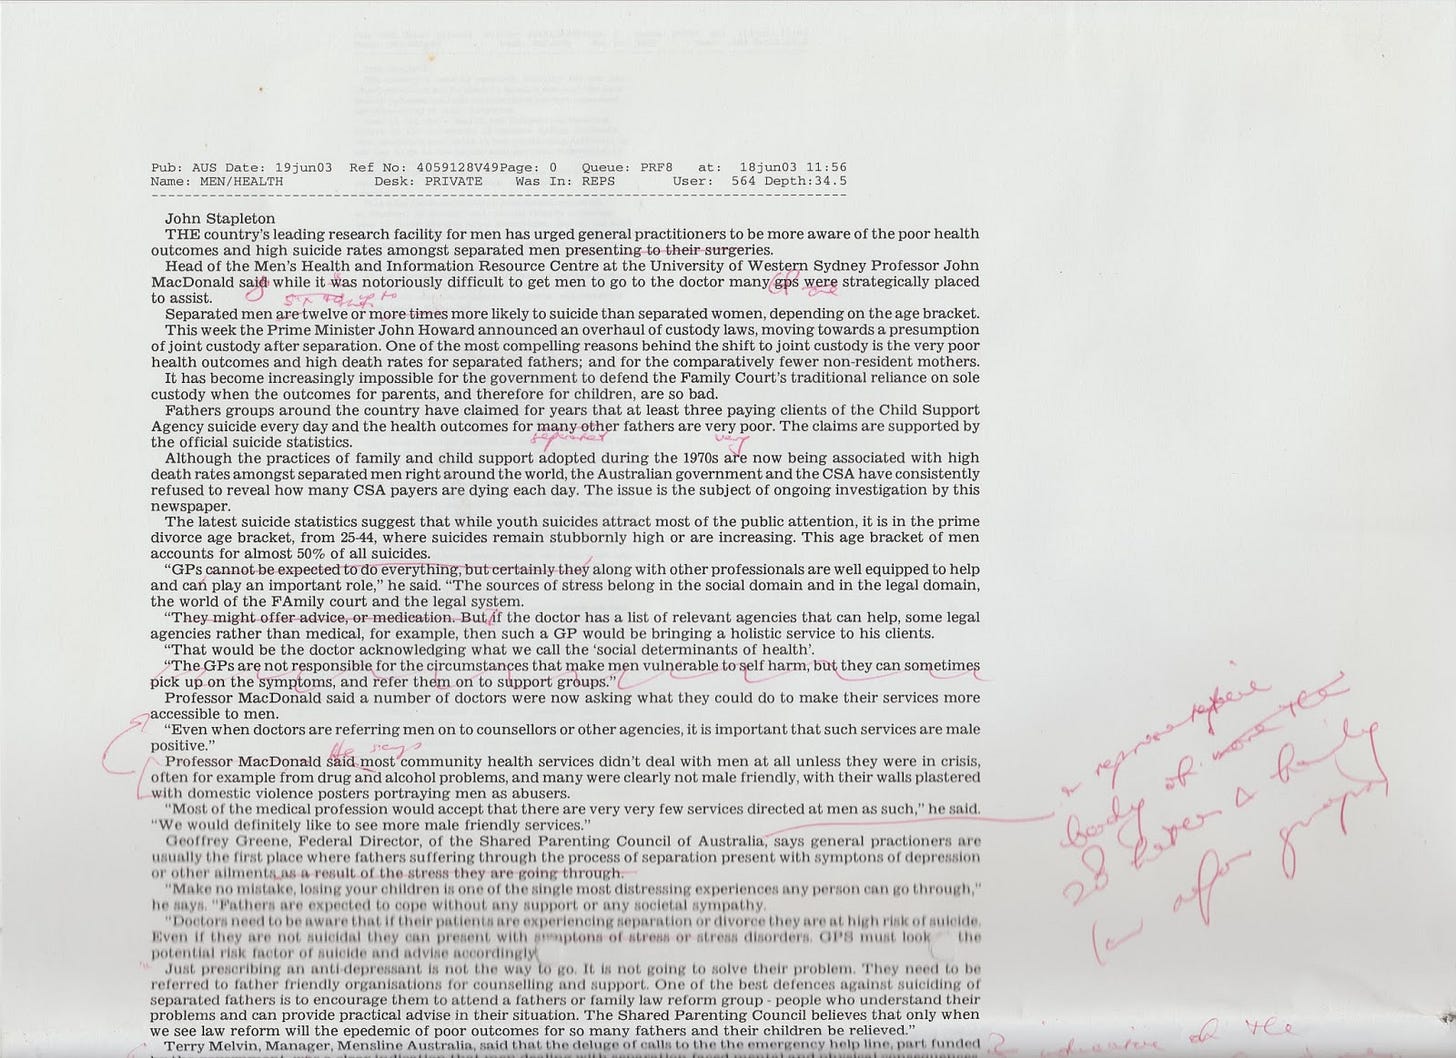 Pub: AUS Date: 19jun03  Ref No: 4059128V49Page: 0   Queue: PRF8   at:  18jun03 11:56
Name: MEN/HEALTH             Desk: PRIVATE    Was In: REPS        User:  564 Depth:34.5
John Stapleton
THE country's leading research facility for men has urged general practitioners to be more aware of the poor health
outcomes and high suicide rates amongst separated men presenting to their surgeries.
Head of the Men's Health and Information Resource Centre at the University of Western Sydney Professor John
MacDonald said while it was notoriously difficult to get men to go to the doctor many gps were strategically placed
GP are
to assist.
Separated men are twelve or more times more likely to suicide than separated women, depending on the age bracket.
This week the Prime Minister John Howard announced an overhaul of custody laws, moving towards a presumption
of joint custody after separation. One of the most compelling reasons behind the shift to joint custody is the very poor
health outcomes and high death rates for separated fathers; and for the comparatively fewer non-resident mothers.
It has become increasingly impossible for the government to defend the Family Court's traditional reliance on sole
custody when the outcomes for parents, and therefore for children, are so bad.
Fathers groups around the country have claimed for years that at least three paying clients of the Child Support
Agency suicide every day and the health outcomes for many other fathers are very poor. The claims are supported by
separated very
the official suicide statistics.
Although the practices of family and child support adopted during the 1970s are now being associated with high
death rates amongst separated men right around the world, the Australian government and the CSA have consistently
refused to reveal how many CSA payers are dying each day. The issue is the subject of ongoing investigation by this
newspaper.
The latest suicide statistics suggest that while youth suicides attract most of the public attention, it is in the prime
divorce age bracket, from 25-44, where suicides remain stubbornly high or are increasing. This age bracket of men
accounts for almost 50% of all suicides.
“GPs cannot be expected to do everything, but certainly they along with other professionals are well equipped to help
and can play an important role,” he said. “The sources of stress belong in the social domain and in the legal domain,
the world of the FAmily court and the legal system.
“They might offer advice, or medication. But if the doctor has a list of relevant agencies that can help, some legal
agencies rather than medical, for example, then such a GP would be bringing a holistic service to his clients.
“That would be the doctor acknowledging what we call the ‘social determinants of health’.
“The GPs are not responsible for the circumstances that make men vulnerable to self harm, but they can sometimes
pick up on the symptoms, and refer them on to support groups.”
Professor MacDonald said a number of doctors were now asking what they could do to make their services more
accessible to men.
“Even when doctors are referring men on to counsellors or other agencies, it is important that such services are male
positive.”
He says
Professor MacDonald said most community health services didn't deal with men at all unless they were in crisis,
often for example from drug and alcohol problems, and many were clearly not male friendly, with their walls plastered
with domestic violence posters portraying men as abusers.
“Most of the medical profession would accept that there are very very few services directed at men as such,” he said.
“We would definitely like to see more male friendly services.”
Geoffrey Greene, Federal Director, of the Shared Parenting Council of Australia, says general practioners are
usually the first place where fathers suffering through the process of separation present with symptoms of depression
or other ailments as a result of the stress they are going through.
“Make no mistake, losing your children is one of the single most distressing experiences any person can go through,”
he says. “Fathers are expected to cope without any support or any societal sympathy.
“Doctors need to be aware that if their patients are experiencing separation or divorce they are at high risk of suicide.
Even if they are not suicidal they can present with symptons of stress or stress disorders. GPS must look the
potential risk factor of suicide and advise accordingly
Just prescribing an anti-depressant is not the way to go. It is not going to solve their problem. They need to be
referred to father friendly organisations for counselling and support. One of the best defences against suiciding of
separated fathers is to encourage them to attend a fathers or family law reform group - people who understand their
problems and can provide practical advise in their situation. The Shared Parenting Council believes that only when
we see law reform will the epedemic of poor outcomes for so many fathers and their children be relieved.”
Terry Melvin, Manager, Mensline Australia, said that the deluge of calls to the the emergency help line, part funded
a representative
body of more
28 family
law groups
indicative of the